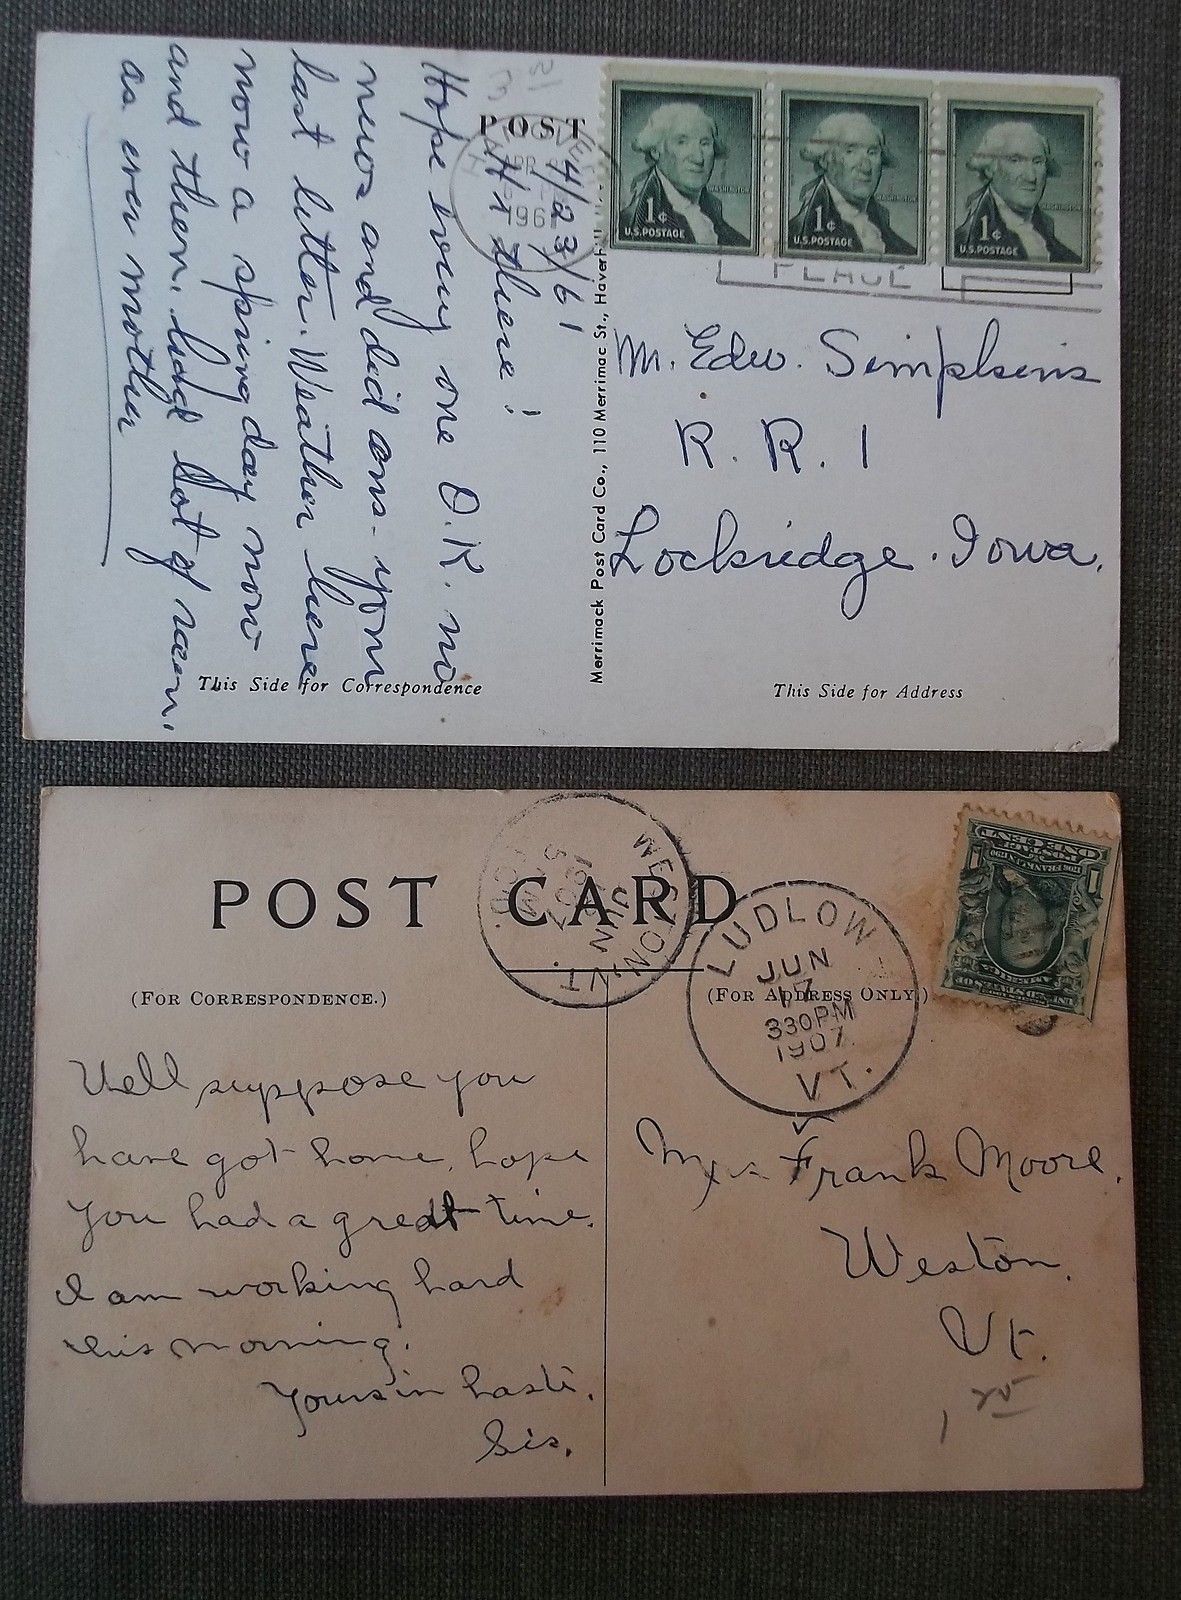 POST
4/23/61
Hi there!
Hope every one O.K. no
news and did ans- your
last letter. Weather here
now a spring day now
and then. had lot of rain.
as ever mother
This Side for Correspondence
Merrimack Post Card Co., 110 Merrimac St., Haverhill
APR
1961
1¢
U.S. POSTAGE
WASHINGTON
1¢
U.S. POSTAGE
WASHINGTON
1¢
U.S. POSTAGE
WASHINGTON
Mr. Edw. Simpkins
R. R. 1
Lockridge. Iowa.
This Side for Address
POST CARD
WESTON, VT.
1907
LUDLOW
JUN
17
330PM
1907
VT.
ONE CENT
1
(For Correspondence.)
(For Address Only.)
Well suppose you
have got home. hope
you had a great time.
I am working hard
this morning.
Yours in haste.
Sis.
Mrs Frank Moore.
Weston.
Vt.
1 25